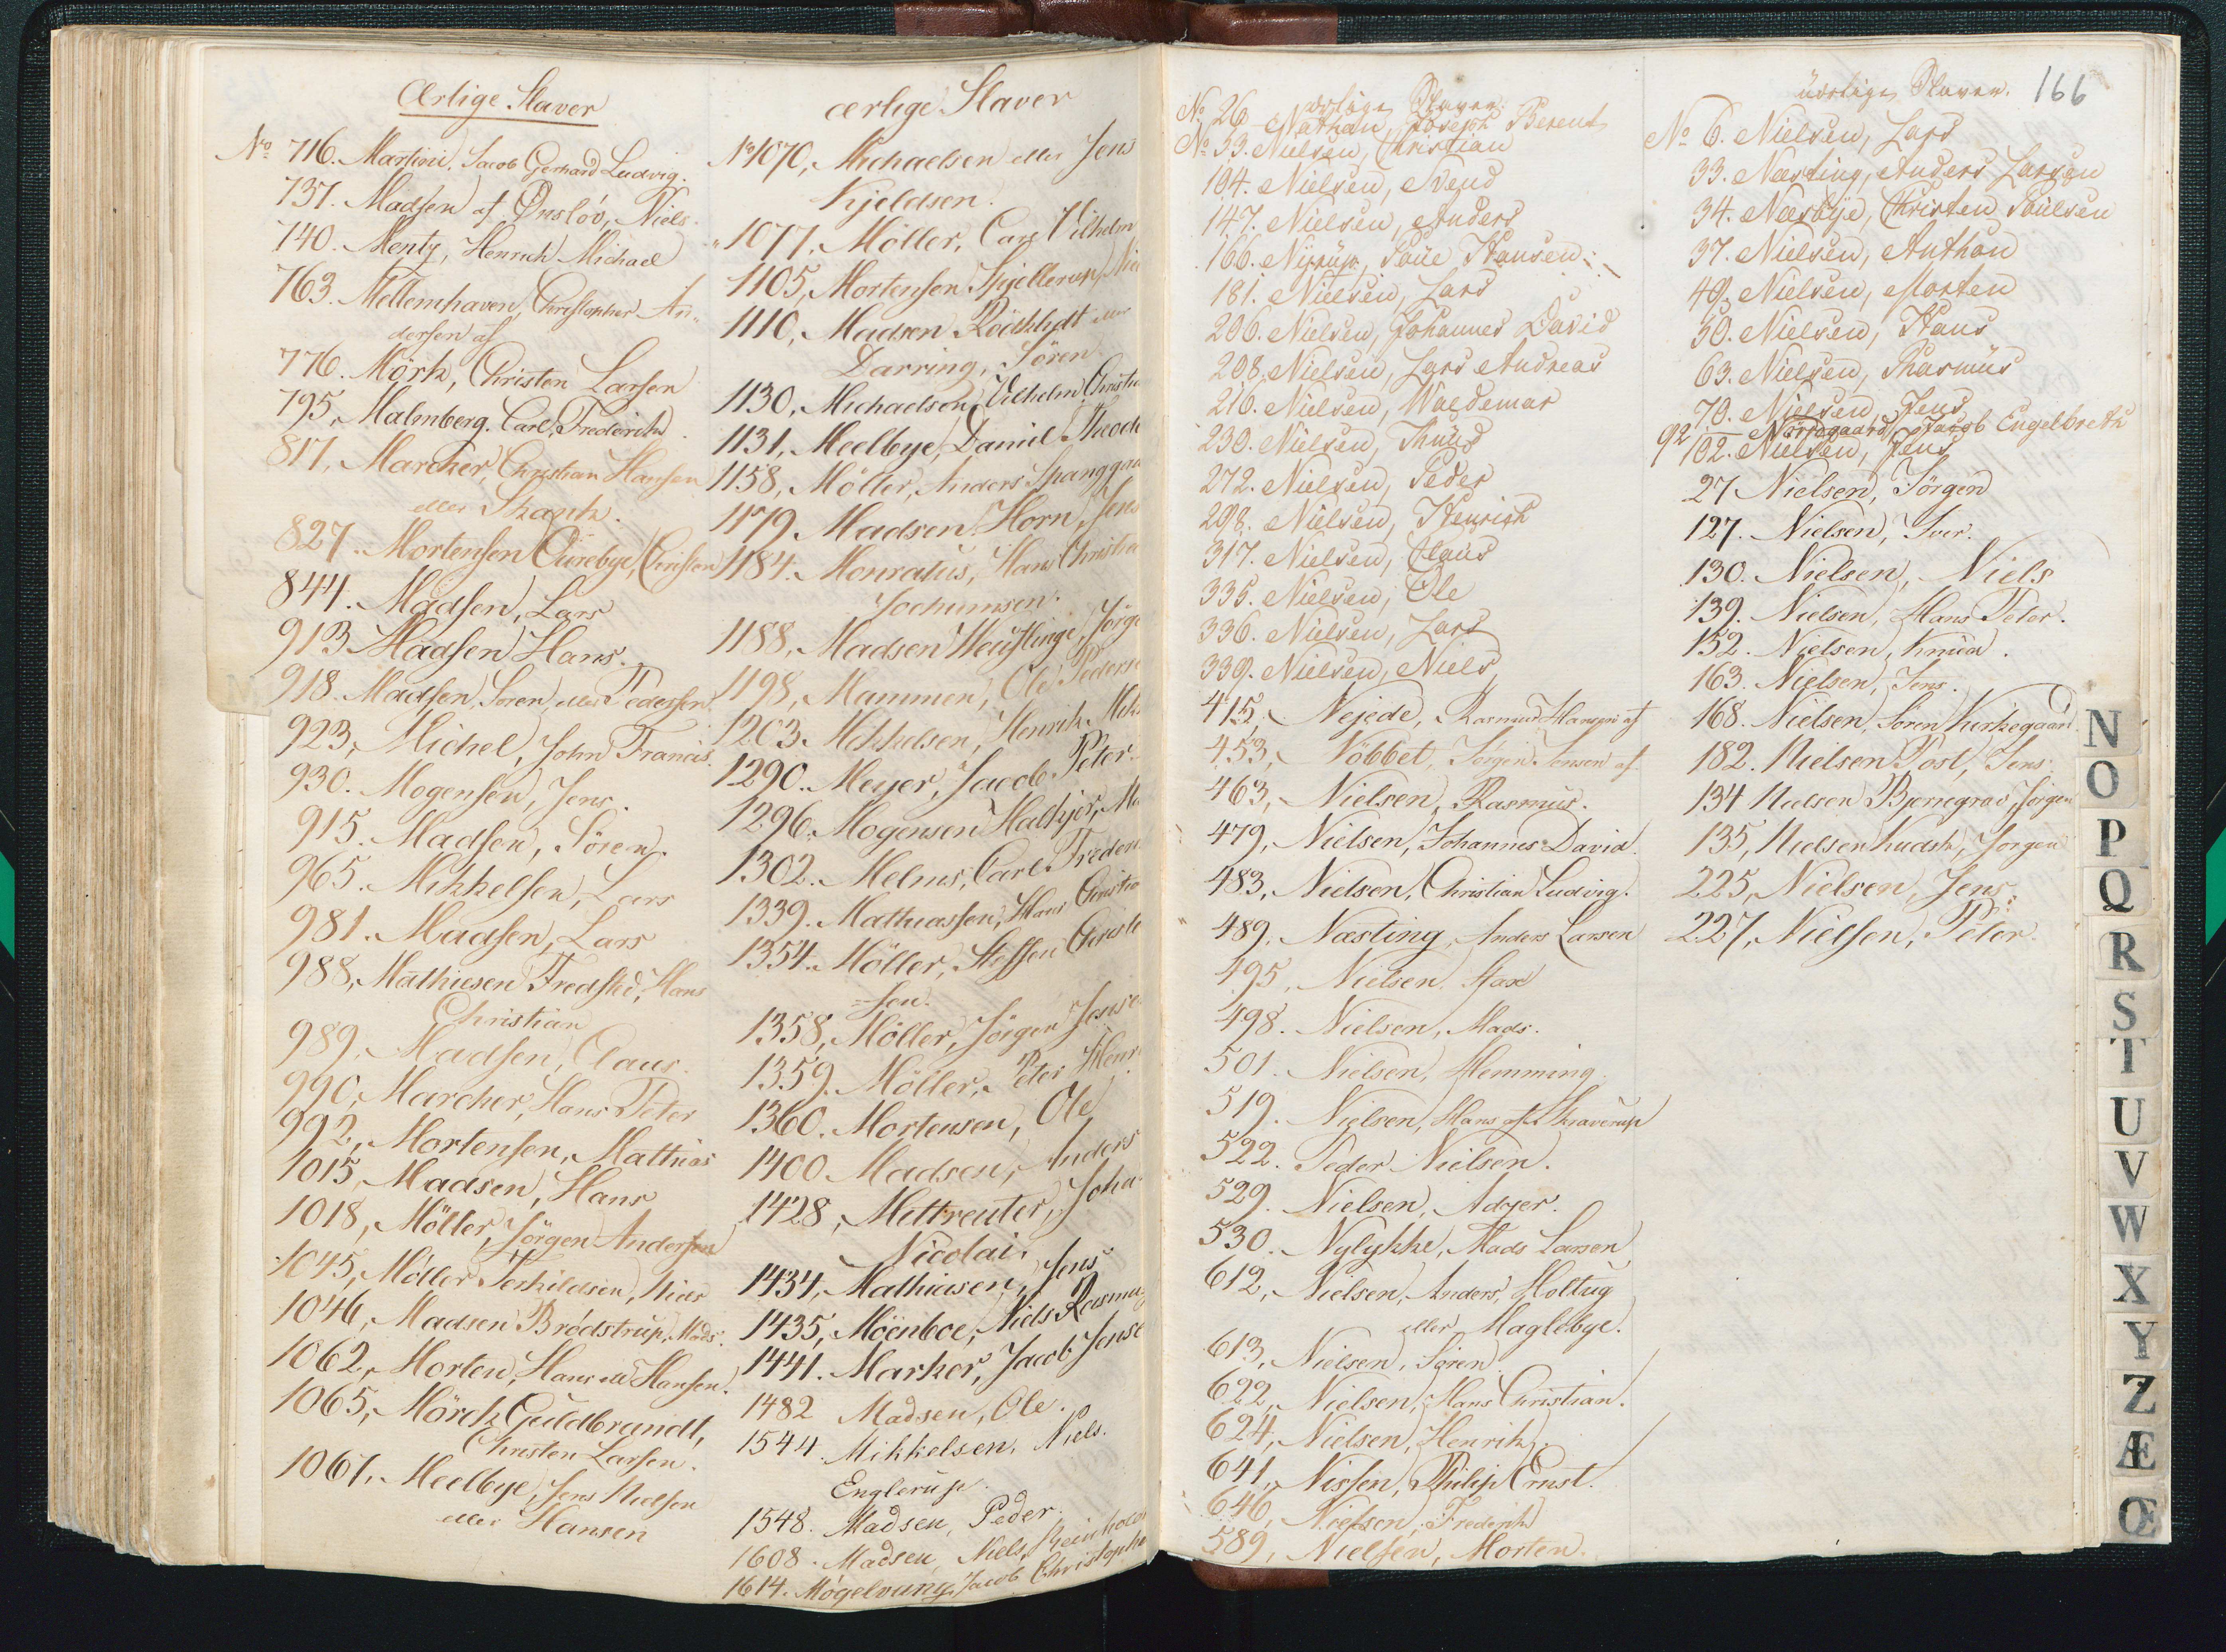 Ærlige Slaver
No 716. Martini, Jacob Gerhard Ludvig.
737. Madsen af Önslöv, Niels.
740. Mentz, Henrich Michael
763. Mellemhaven, Christopher An-
dersen af
776. Mörk, Christen Larsen
795. Malmberg. Carl Frederik
817, Marcher, Christian Hansen
eller Skank.
827. Mortensen Öürebye, Christen
844. Madsen, Lars
913 Madsen Hans.
918. Madsen, Sören, eller Pedersen.
923, Michel, John Francis.
930. Mogensen, Jens.
915. Madsen, Sören.
965. Mikkelsen, Lars
981. Madsen, Lars
988, Mathiesen Fredsted, Hans
Christian
989, Madsen, Claus.
990, Marcher, Hans Peter
992, Mortensen, Mathias
1015, Madsen, Hans
1018, Möller, Jörgen Andersen
1045, Möller Terkildsen, Niels
1046, Madsen Brödstrup, Mads.
1062, Morten, Hans ell Hansen.
1065, Mörck Guldbrandt,
Christen Larsen.
1067, Meelbye, Jens Nielsen
eller Hansen
ærlige Slaver
No 1070, Michaelsen eller Jens
Kjeldsen.
1077, Möller, Carl Vilhelm
1105, Mortensen Skjellerup,
1110, Madsen Rödklidt eller
Darring, Sören
1130, Michaelsen, Vilhelm Christi
1131, Meelbye, Daniel Theodo
1158, Möller, Anders Spanggaa
1179. Madsen Horn, Jens
1184. Monratus, Hans Christia
Jochumsen.
1188, Madsen Heustlinge, Jörge
1198, Mammen, Ole Peders
1203. Mikkelsen, Henrik Mik
1290. Meyer, Jacob Peter
1296. Mogensen Halkjer, Ma
1302. Melms, Carl Freder
1339. Mathiassen, Hans Christia
1354. Möller, Steffen Christ
-sen.
1358, Möller, Jörgen Jense
1359. Möller, Peter Henr
1360. Mortensen, Ole
1400 Madsen, Anders
1428, Mettreuter, Joha
Nicolai.
1434, Mathiasen, Jens
1435, Möenboe, Niels Rasmu
1441. Marker, Jacob Jense
1482 Madsen, Ole.
1544. Mikkelsen, Niels.
Englerup.
1548. Madsen, Peder.
1608. Madsen, Niels, Reinhold
1614. Mögelvang, Jacob Christophe
ærlige Slaver.
No 26 Nathan, Joseph Berent
No 53. Nielsen, Christian
104. Nielsen, Svend
147. Nielsen, Anders
166. Nyrup, Povl Hansen
181. Nielsen, Lars
206. Nielsen, Johannes David
208. Nielsen, Lars Andreas
216. Nielsen, Waldemar
230. Nielsen, Knud
272. Nielsen, Peder
298. Nielsen, Henrich
317. Nielsen, Claus
335. Nielsen, Ole
336. Nielsen, Lars
339. Nielsen, Niels
415, Nejede, Rasmus Hansen af
453, Nöbbet, Jörgen Jensen af
463, Nielsen, Rasmus.
479, Nielsen, Johannes David.
483, Nielsen, Christian Ludvig.
489, Næsting, Anders Larsen
495, Nielsen
498. Nielsen, Mads.
501. Nielsen, Hemming.
519. Nielsen, Hans af Skraverup
522. Peder Nielsen.
529. Nielsen, Adser.
530. Nylykke, Mads Larsen
612, Nielsen, Anders, Holtug
eller Maglebye.
613, Nielsen, Sören
622, Nielsen, Hans Christian.
624, Nielsen, Henrik.
641, Nissen, Philip Ernst.
646, Nielsen, Frederik
589, Nielsen, Morten.
166
uærlige Slaver.
No 6. Nielsen, Lars
33. Næsting, Anders Larsen
34. Næsbye, Christen Poulsen
37. Nielsen, Anthon
49. Nielsen, Morten
50. Nielsen, Hans
63. Nielsen, Rasmus
70. Nielsen, Jens
92 Nörregaard, Jacob Engelbreth
102. Nielsen, Jens
27 Nielsen, Jörgen
127. Nielsen, Iver.
130. Nielsen, Niels
139. Nielsen, Hans Peter.
152. Nielsen, Knud.
163. Nielsen, Jens.
168. Nielsen, Sören Kirkegaard.
182. Nielsen Post, Jens.
134 Nielsen Bjerregrav, Jörgen
135, Nielsen Kudsk, Jörgen
225, Nielsen, Jens.
227, Nielsen, Peter.
N
O
P
Q
R
S
T
U
V
W
X
Y
Z
Æ
Œ